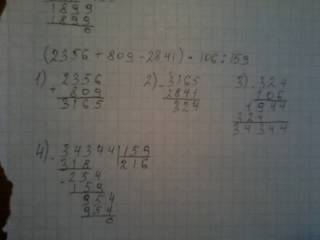 1899
1899
0
(2356 + 809 - 2841) · 106 : 159
1) + 2356
809
3165
2) - 3165
2841
324
3) 324
106
1944
324
34344
4) - 34344 | 159
318 216
- 254
159
954
954
0